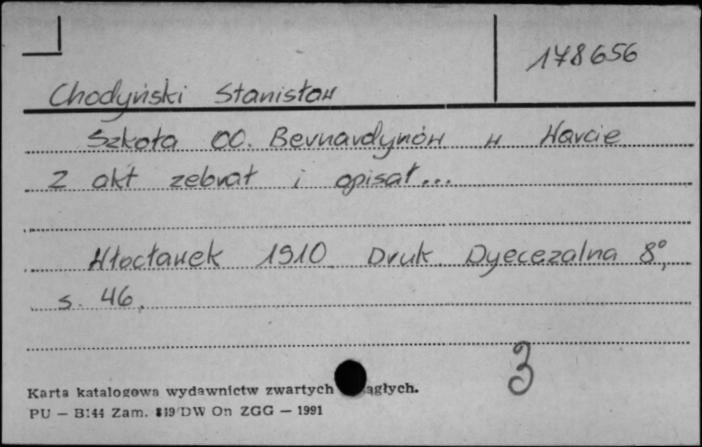 178656
Chodyński Stanisław
Szkoła OO. Bernardynów w Warcie
Z akt zebrał i opisał...
Włocławek 1910 Druk Dyecezalna 8°,
s. 46.
3
Karta katalogowa wydawnictw zwartych ągłych.
PU — B144 Zam. 819 DW On ZGG — 1991